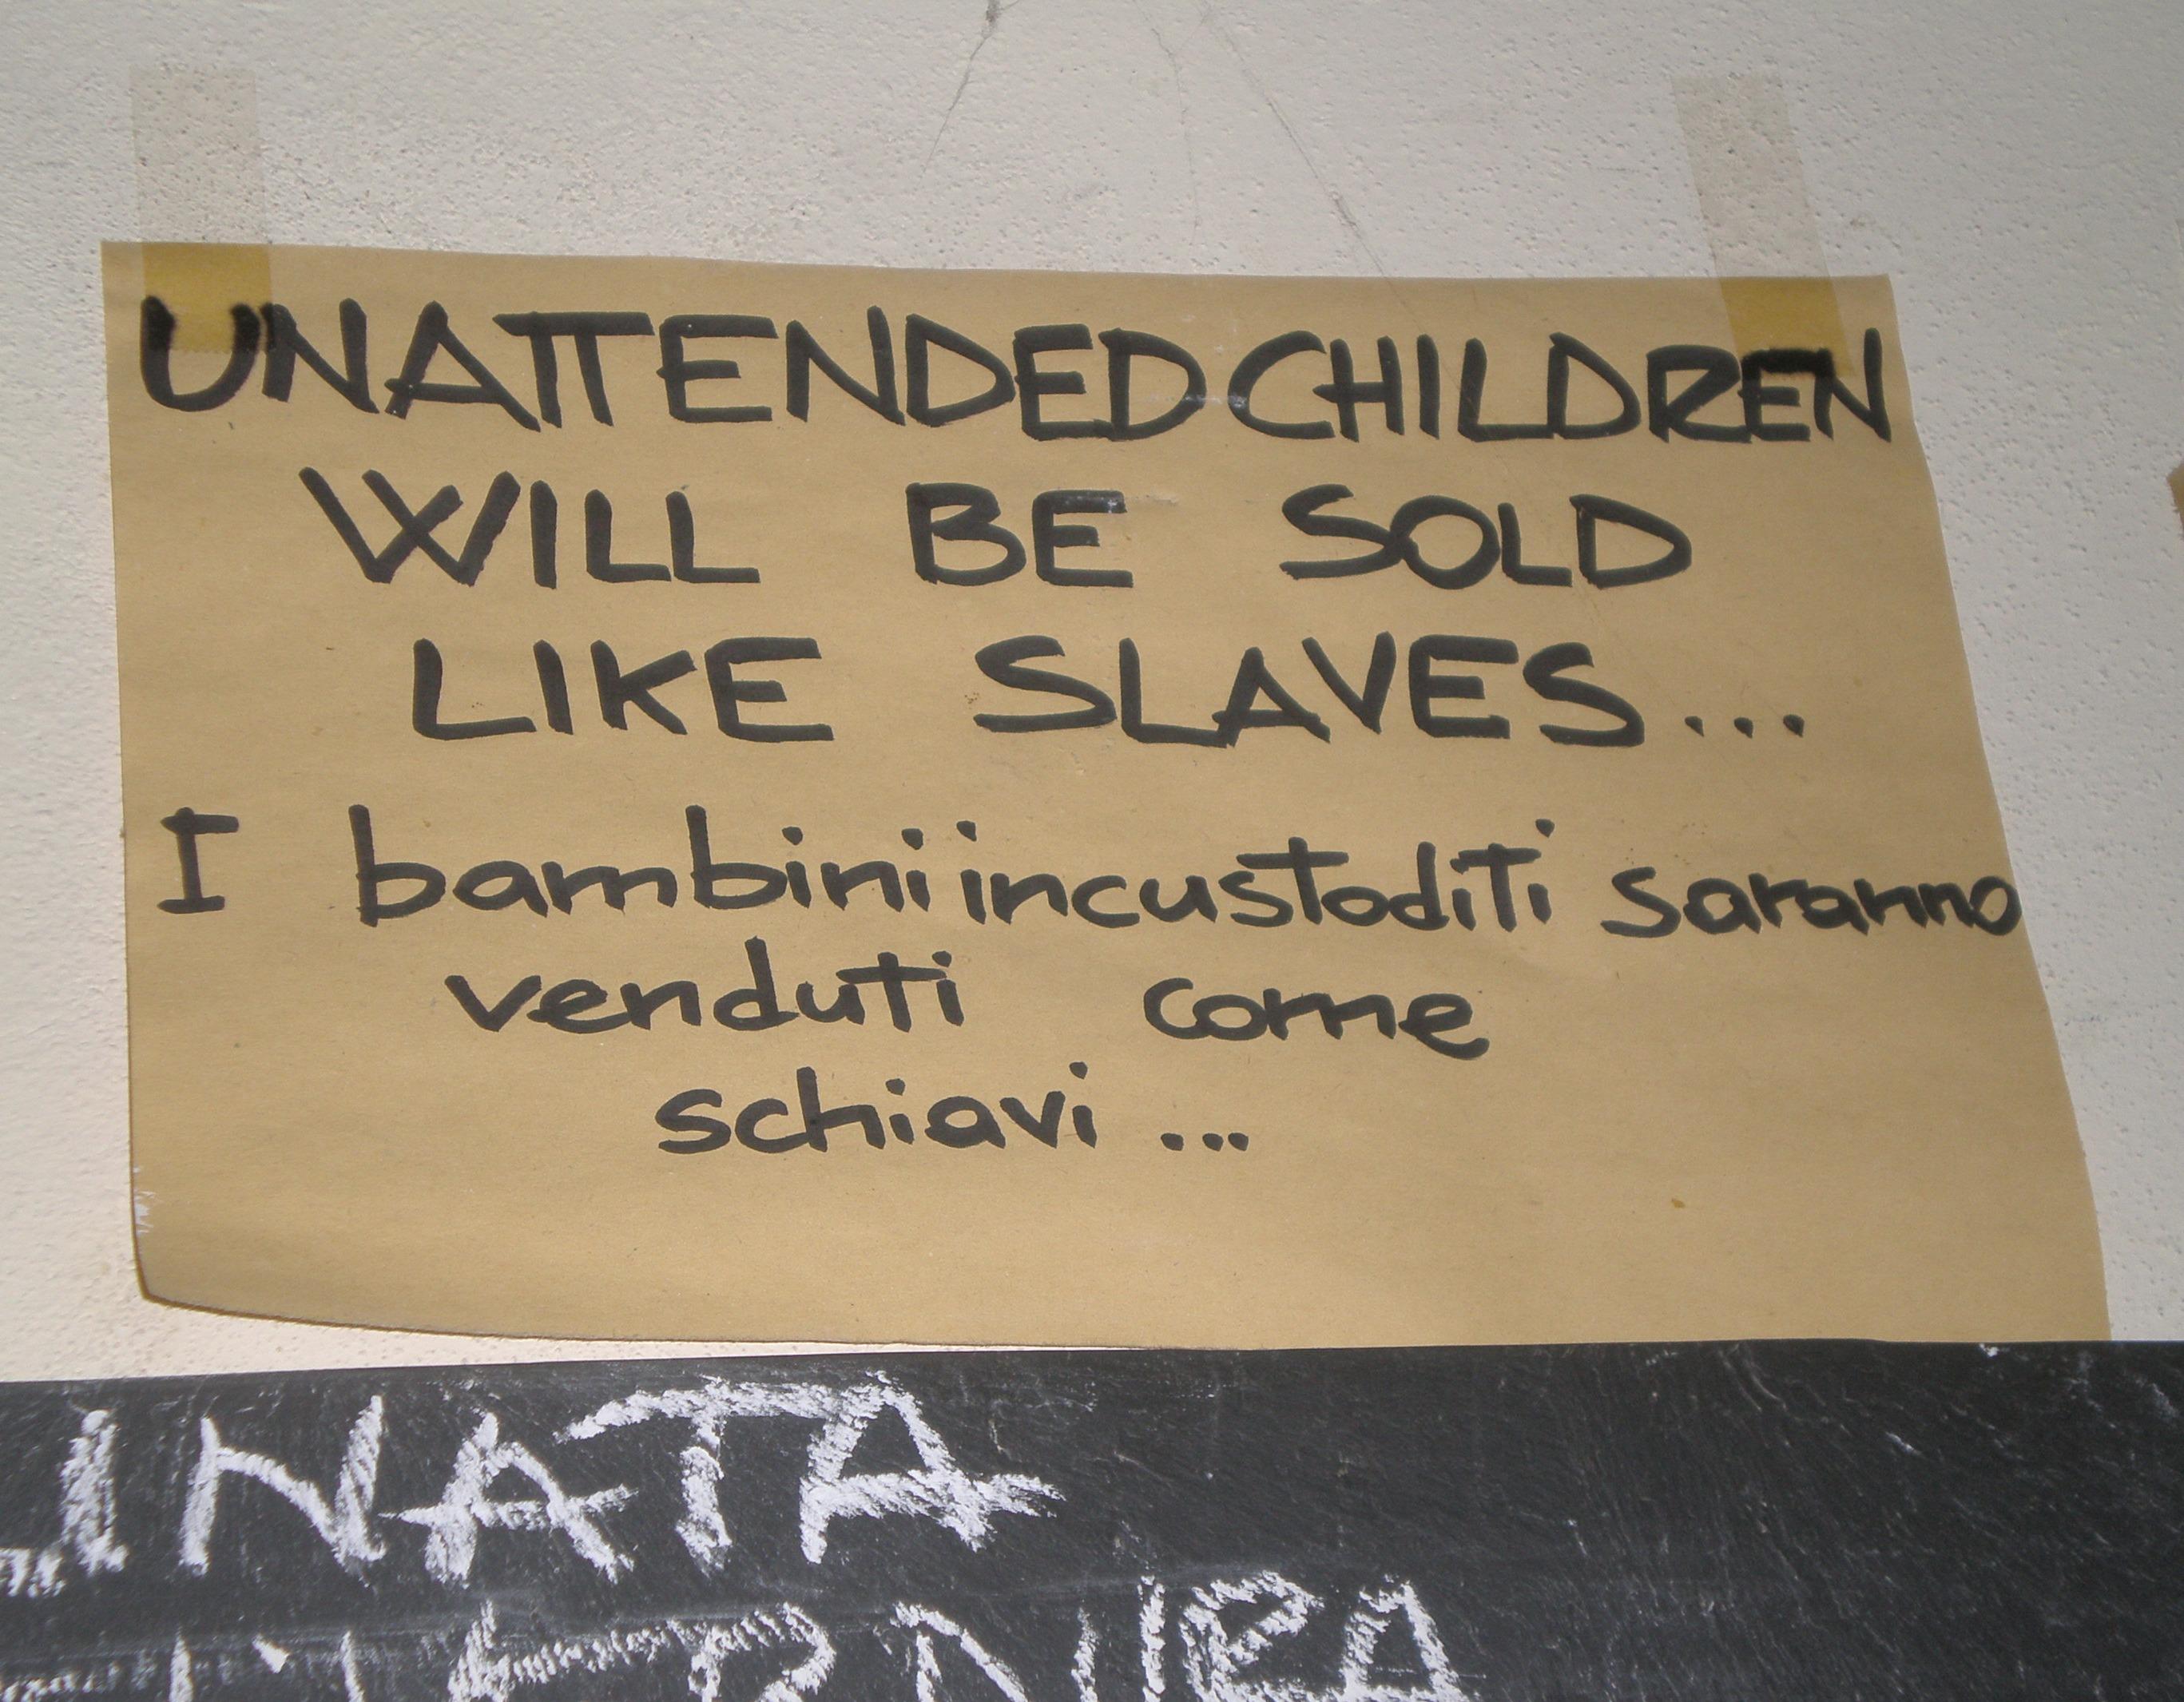 UNATTENDED CHILDREN
WILL BE SOLD
LIKE SLAVES...
I bambini incustoditi saranno
venduti come
schiavi ...